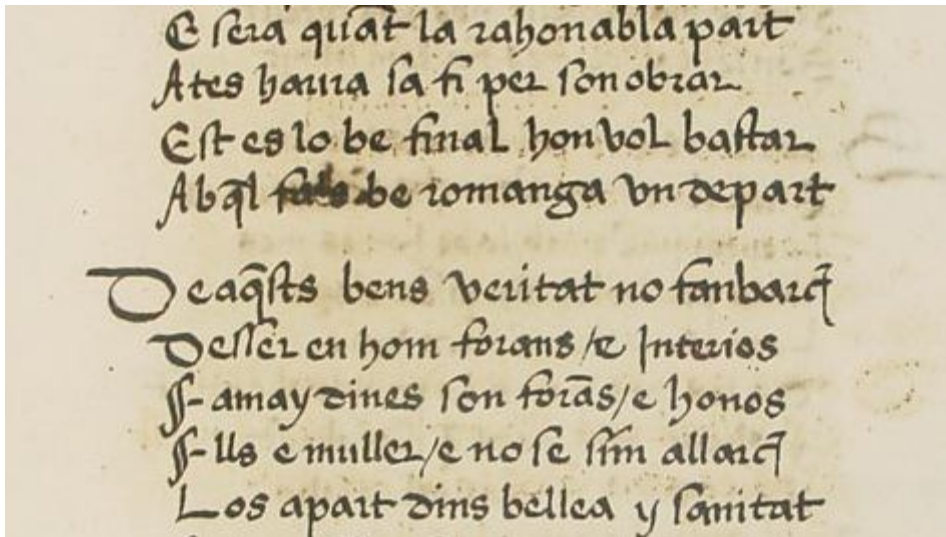 E sera quāt la rahonabla part
Ates haura sa fi per son obrar
Est es lo be final hon vol bastar
A b q̄l fals be romanga vn depart
De aq̄sts bens veritat no fan barq̄
Desser en hom forans / e Interios
Ffama y dines son forās / e honos
Ffills e muller / e no se sim allarq̄
Los apart dins bellea y sanitat